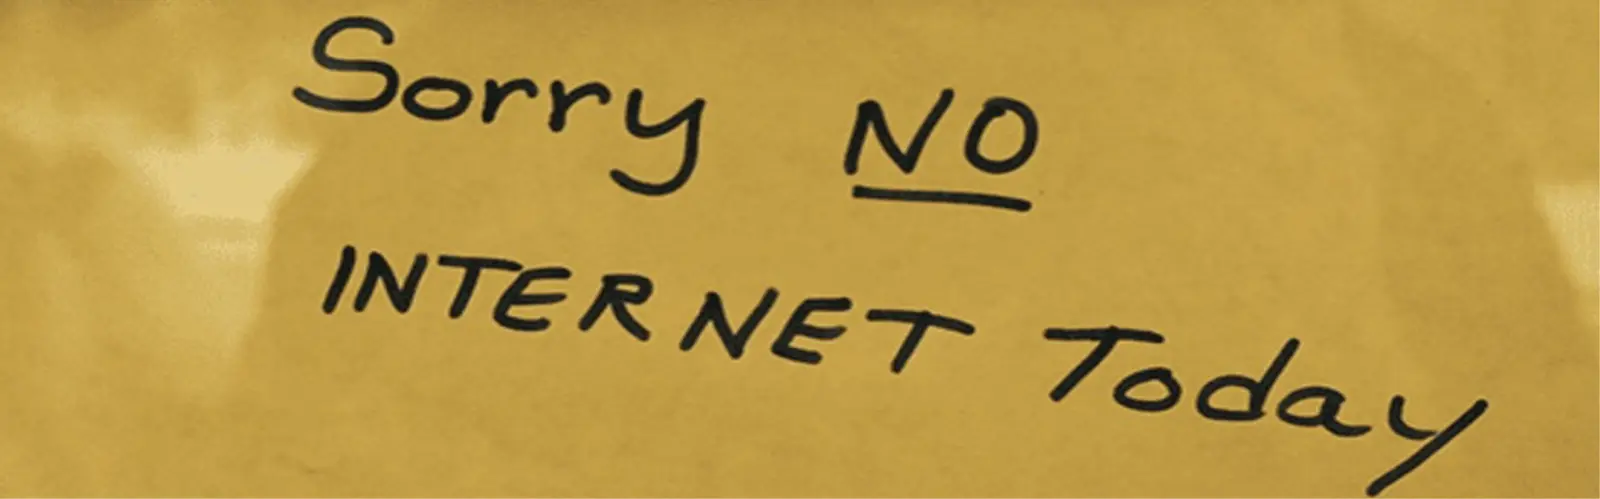 Sorry NO
INTERNET Today